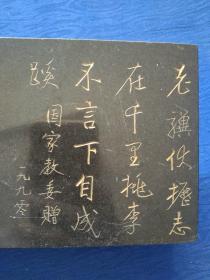 老骥伏枥志
在千里桃李
不言下自成
蹊 国家教委赠
一九九零